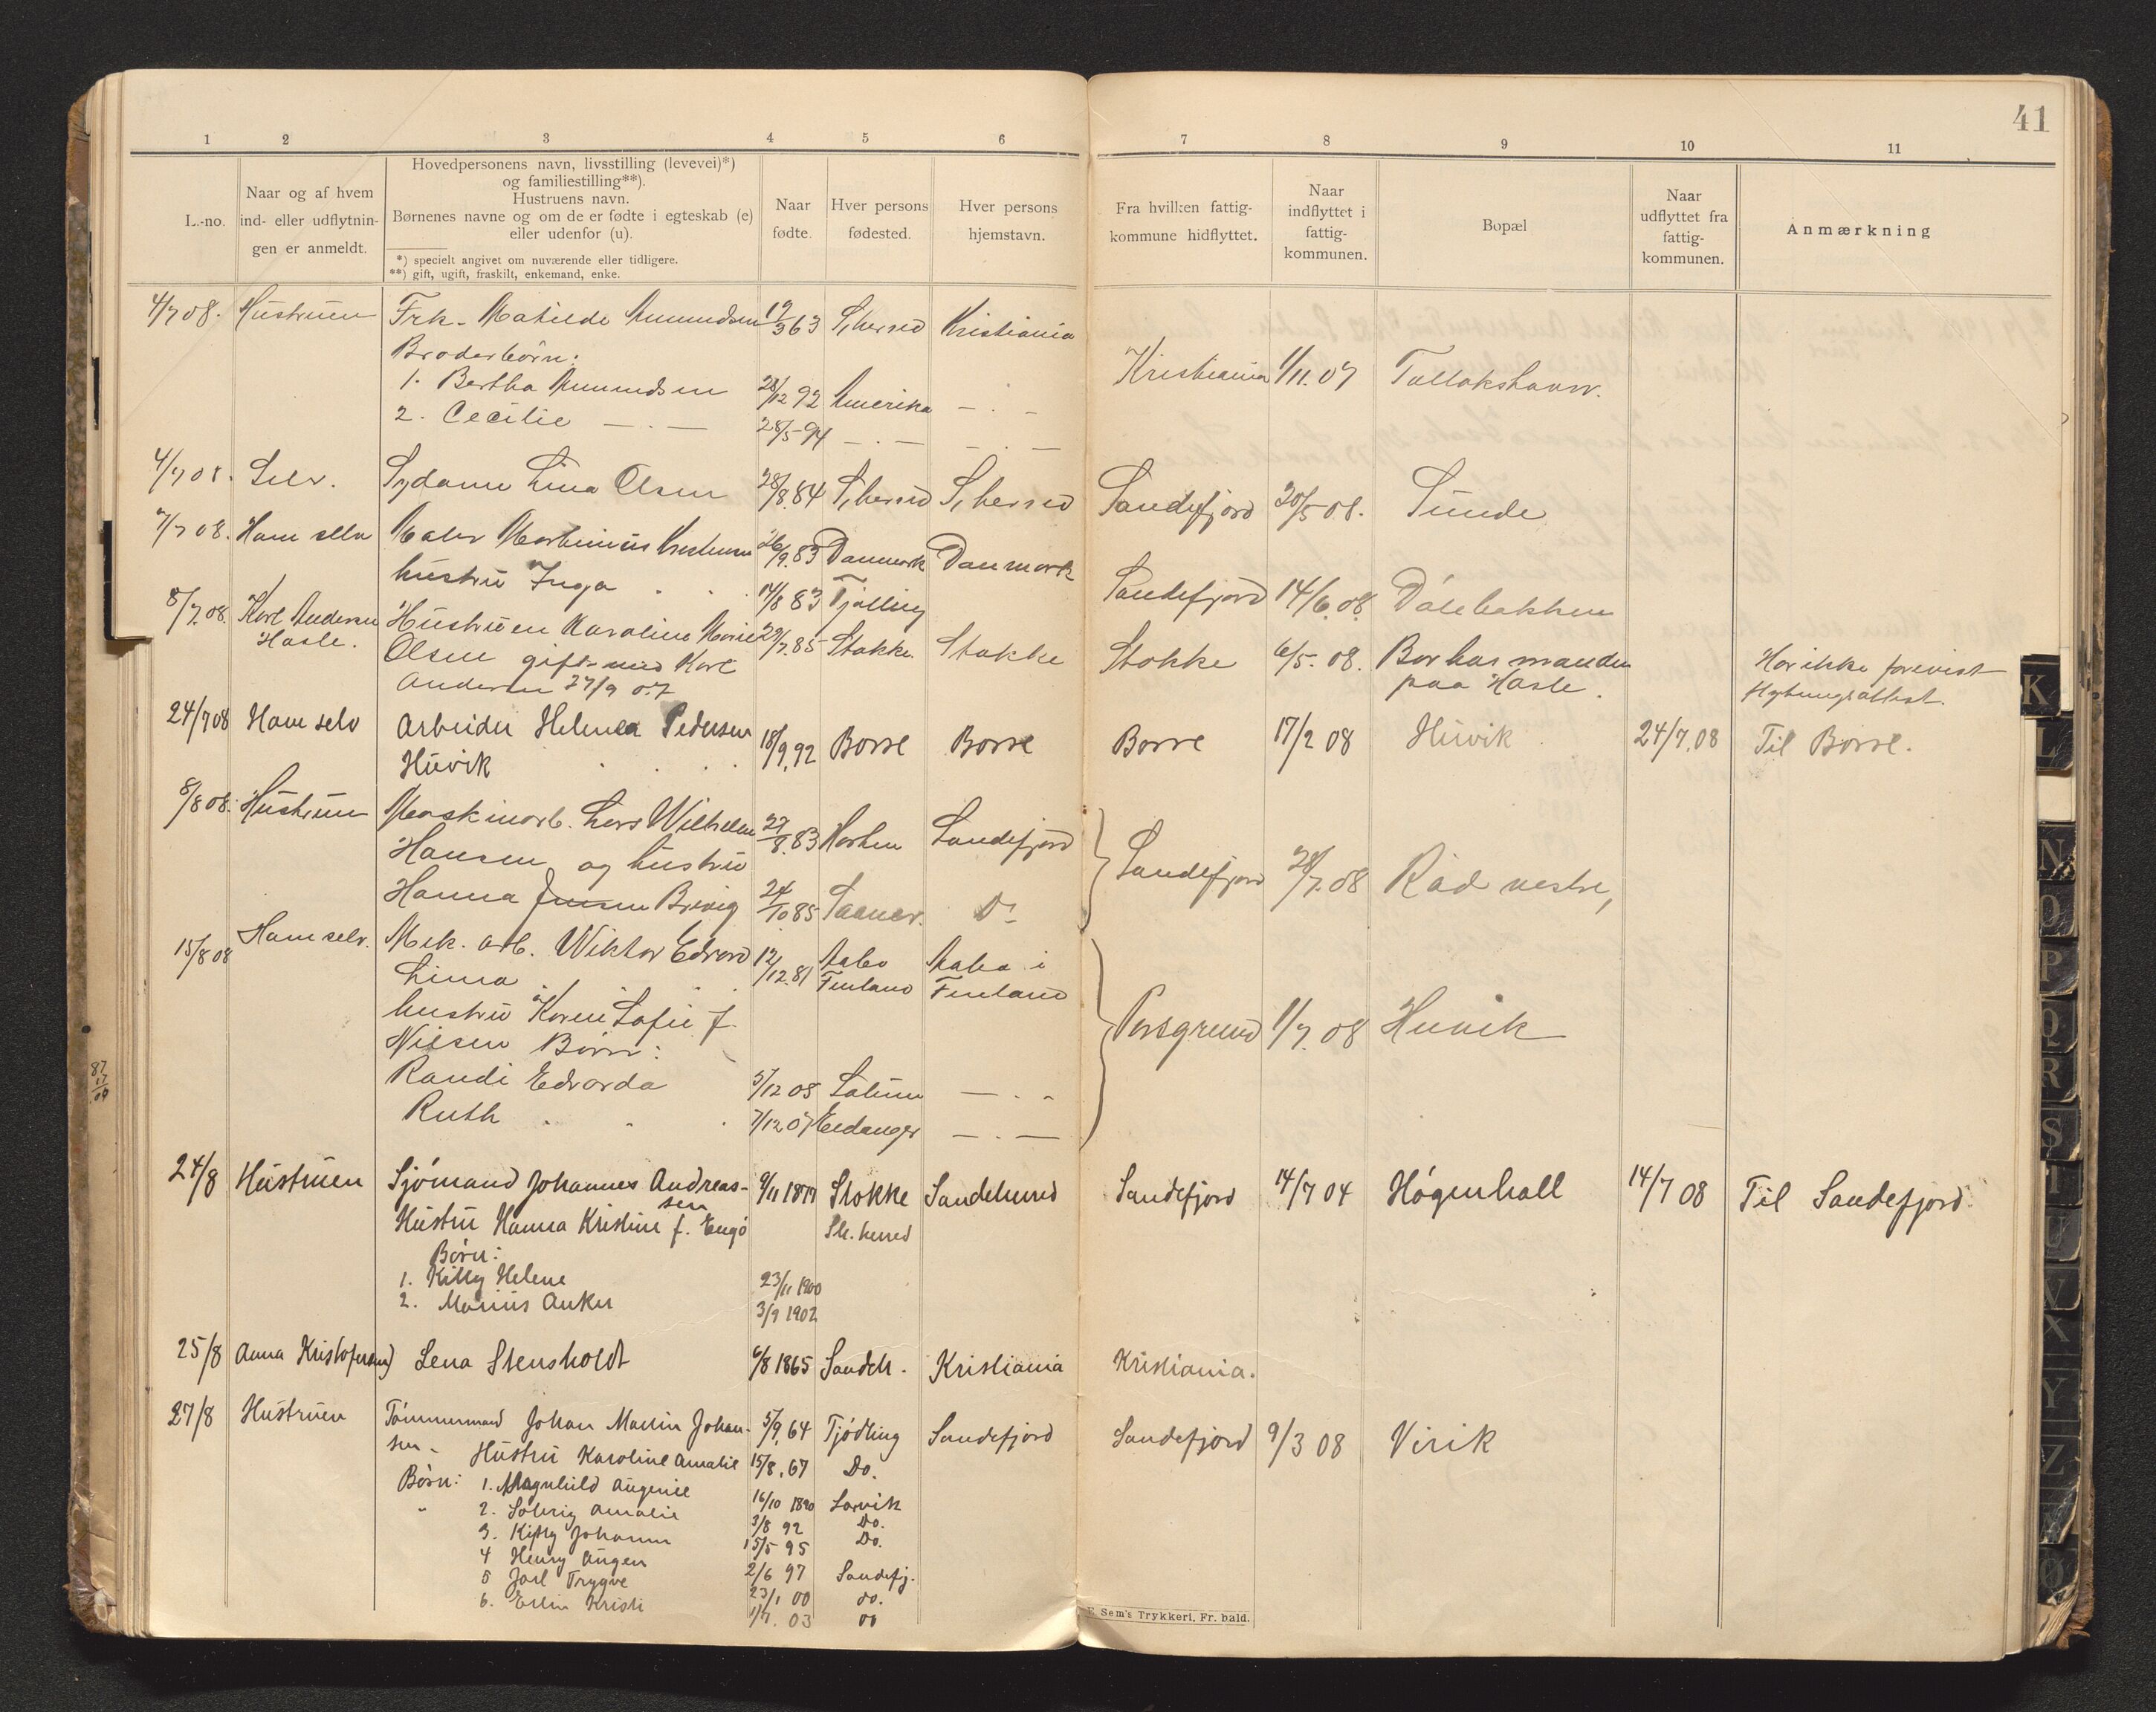 41
1 2 3 4 5 6 7 8 9 10 11
L.-no.
Naar og af hvem
ind- eller udflytnin-
gen er anmeldt.
Hovedpersonens navn, livsstilling (levevei)*)
og familiestilling**).
Hustruens navn.
Børnenes navne og om de er fødte i egteskab (e)
eller udenfor (u).
*) specielt angivet om nuværende eller tidligere.
**) gift, ugift, fraskilt, enkemand, enke.
Naar
fødte.
Hver persons
fødested.
Hver persons
hjemstavn.
Fra hvilken fattig-
kommune hidflyttet.
Naar
indflyttet i
fattig-
kommunen.
Bopæl
Naar
udflyttet fra
fattig-
kommunen.
Anmærkning
4/7 08. Hustruen Frk. Matilde Amundsen 19/3 63 S,herred Kristiania
Broderbörn:
1. Bertha Amundsen 28/12 92 Amerika — . — Kristiania 1/11.07
2. Cecilie — . — 28/5-94 — . — — . —
4/7 08. Selv. Sydame Lina Olsen 28/8.84 S,herred S,herred Sandefjord 20/5 08. Sunde
7/7 08. Ham selv Maler 26/9.83 Danmark Danmark
hustru Inga 14/8 83 Tjølling Sandefjord 14/6.08.
8/7.08. Karl Andersen Hustruen Karoline Marie 29/7.85 Stokke. Stokke Stokke 6/5. 08. Bor hos manden Har ikke forevist
Hasle. Olsen gift med Karl paa Hasle. Flytningsattest.
Andersen 27/9 07
24/7 08 Ham selv Arbeider Pedersen 18/9.92 Borre Borre Borre 17/2 08 Huvik 24/7.08 Til Borre.
Huvik
8/8 08. Hustruen Maskinarb. Lars Wilhelm 27/8.83 Horten Sandefjord
Hansen og hustru Sandefjord 28/7.08 Råd vestre,
Hanna Jensen Brevig 24/10 85 Do
15/8 08 Ham selv. Mek. arb. Wiktor Edvard 12/12.81 Aabo Aabo i
Lima Finland Finland
hustru Karen Sofie f. Porsgrund 1/7.08 Huvik
Nilsen Börn:
Randi Edvarda 5/12 05 — . -
Ruth 7/12 07 Eidanger — . —
24/8 Hustruen Sjómand Johannes Andreas- 9/11 1877 Stokke Sandeherred Sandefjord 14/7 04 Hógenhall 14/7 08 Til Sandefjord.
sen
Hustru Hanna Kristine f. Engó S.herred
Børn:
1. Kitty Helene 23/11 1900
2. Marius Anker 3/9 1902
25/8 Anna Kristofersen) Lena Stensholdt 6/8 1865 Sandeh. Kristiania Kristiania.
27/8 Hustruen Tómmermand Johan Martin Johan- 5/9.64 Tjódling Sandefjord Sandefjord 9/3 08 Virik
sen - Hustru Karoline Amalie 15/8.67 Do.
Børn: 1. Magnhild Augenie 16/10 1890 Larvik
" 2. Solveig Amalie 3/8 92 Do.
3. Kitty Johanne 15/5 95 Do.
4 Henry Augen 2/6 97 Sandefj.
5 Jarl Trygve 23/1 00 do.
6. Kristi 1/7. 03 do
E. Sem's Trykkeri, Fr. hald.
K
L
N
O
P
Q
R
S
T
U
V
X
Y
Z
Ø